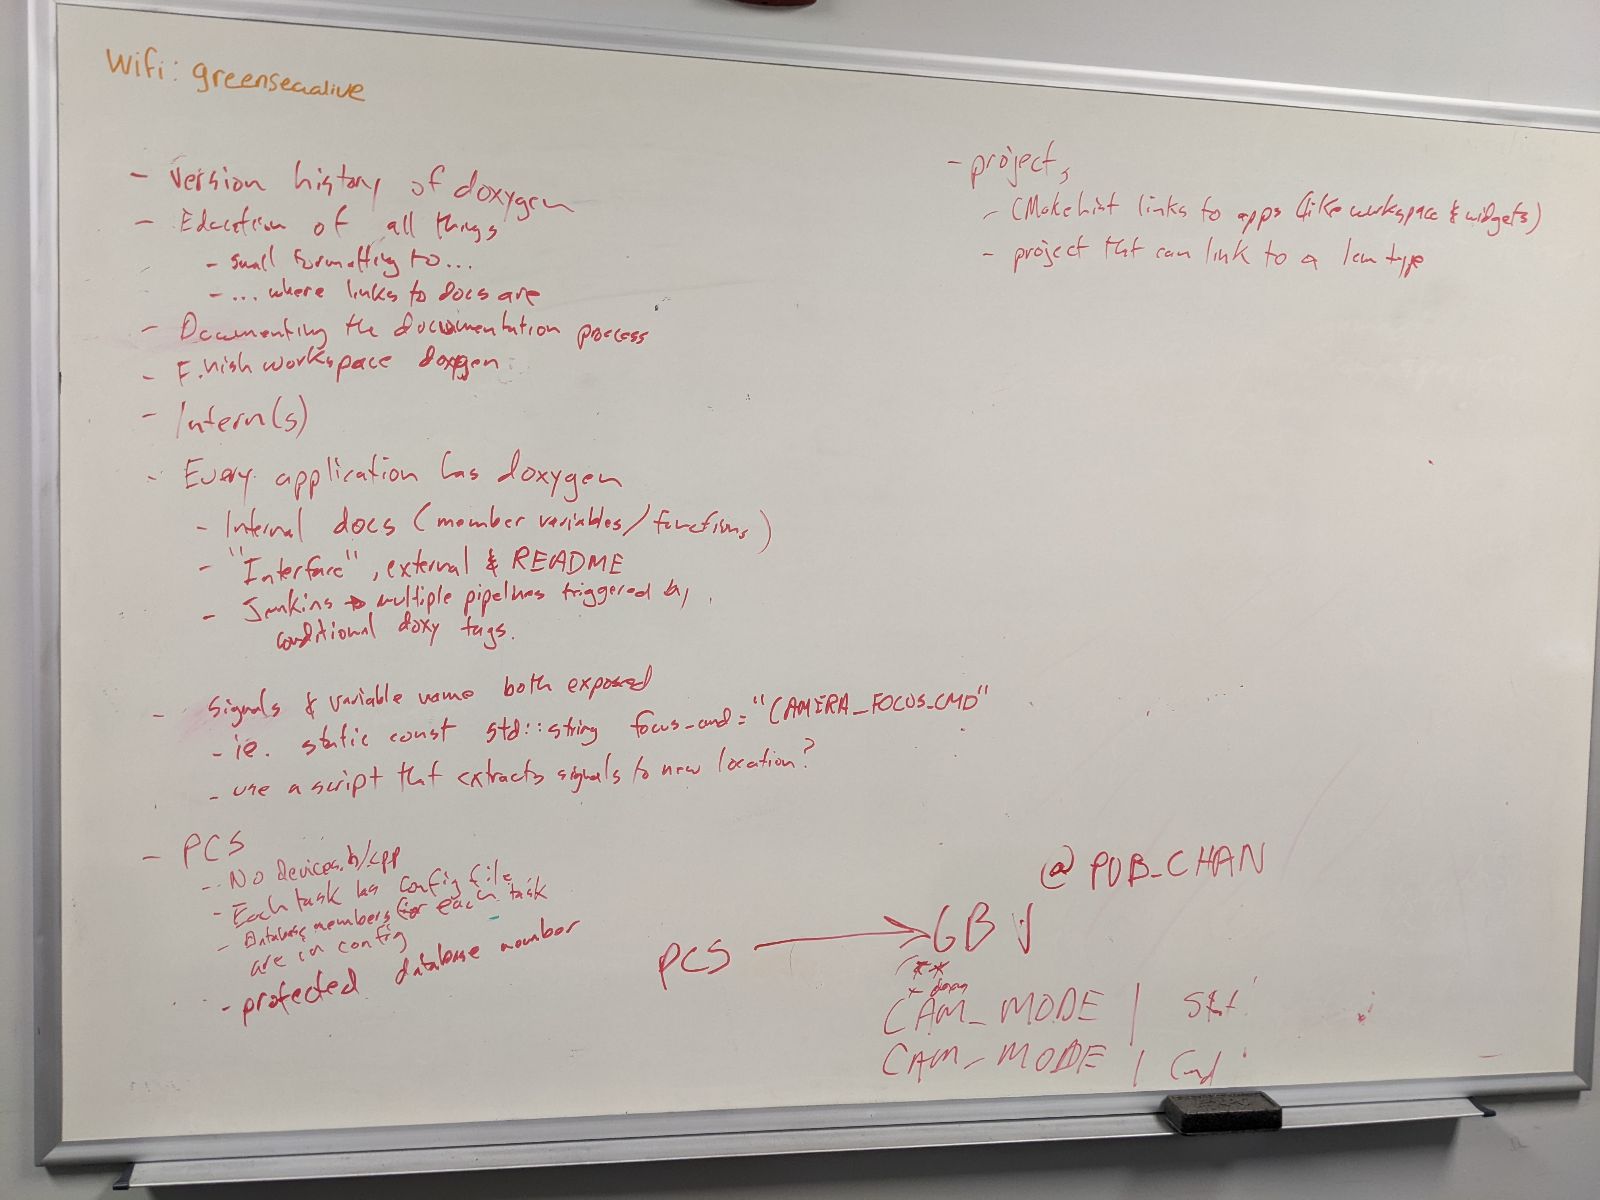 Wifi: greenseaalive
- Version history of doxygen
- Education of all things
- small formatting to...
- ... where links to docs are
- Documenting the documentation process
- Finish workspace doxygen
- Intern(s)
- Every application has doxygen
- Internal docs (member variables/functions)
- "Interface", external & README
- Jenkins → multiple pipelines triggered by
conditional doxy tags.
- Signals & variable name both exposed
- ie. static const std::string focus_cmd = "CAMERA_FOCUS_CMD"
- use a script that extracts signals to new location?
- PCS
- No devices.h/.cpp
- Each task has config file
- Database members for each task
are in config
- protected database number
- projects
- CMakeList links to apps (like workspace & widgets)
- project that can link to a lcm type
@ PUB_CHAN
PCS → GBV
/**
*
CAM_MODE | Stat
CAM_MODE | Cmd